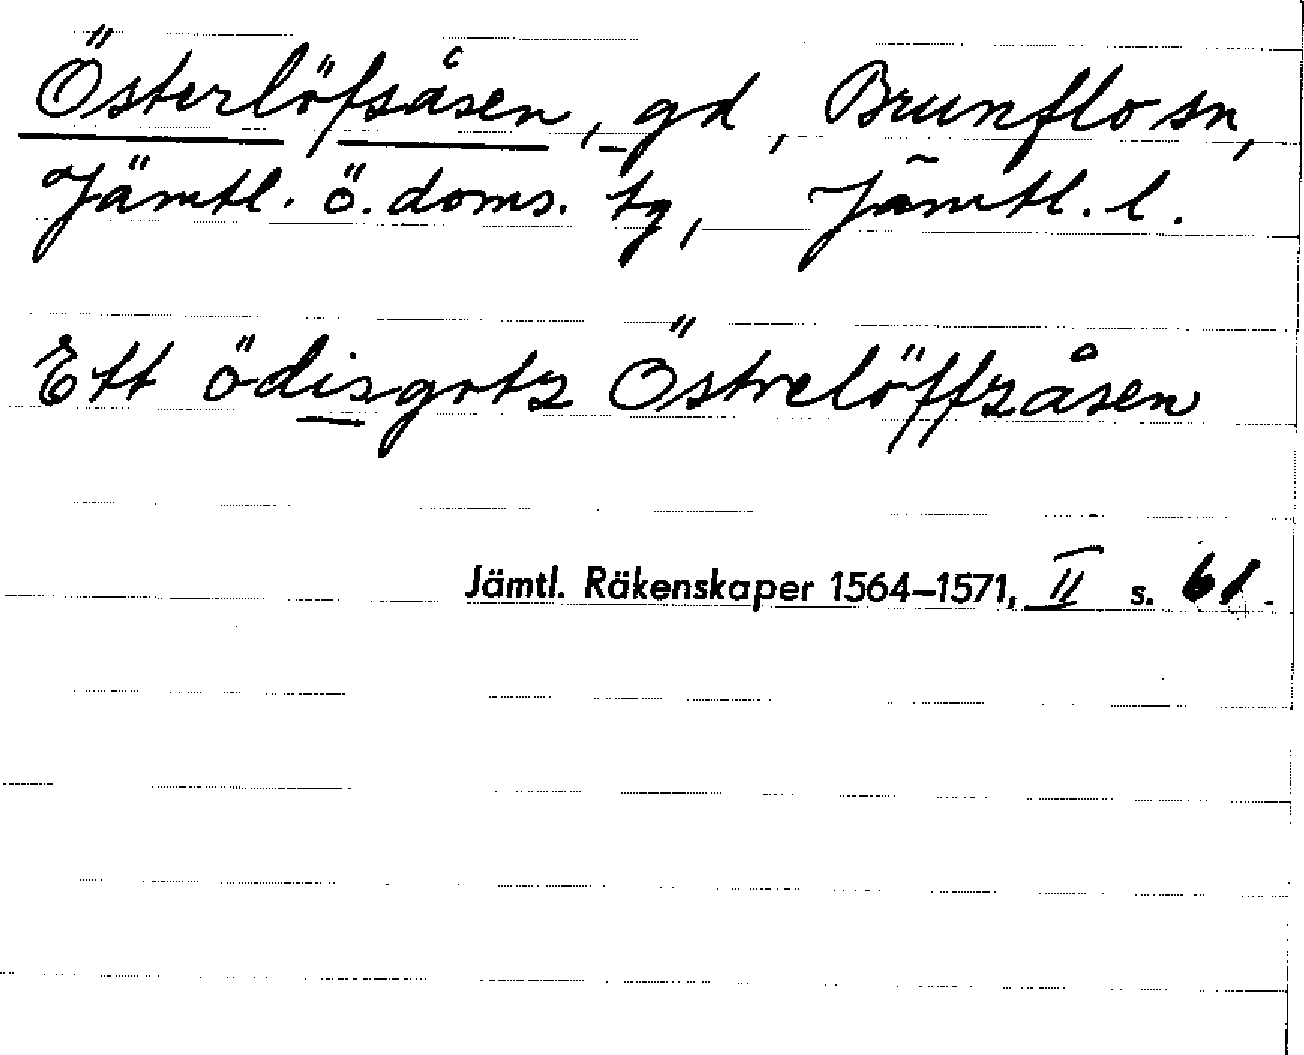 Österlöfsåsen, gd, Brunflo sn,
Jämtl. ö. doms. tg, Jämtl. l.
Ett ödisgotz Östrelöffzåsen
Jämtl. Räkenskaper 1564–1571, II s. 61.